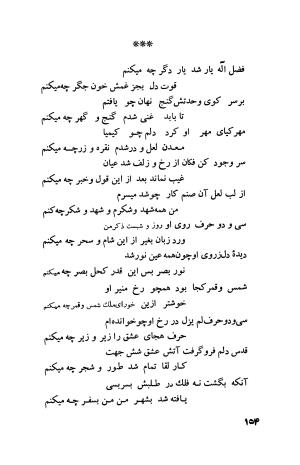 ***
فضل اله یار شد یار دگر چه میکنم
قوت دل بجز غمش خون جگر چه میکنم
بر سر کوی وحدتش گنج نهان چو یافتم
تا بابد غنی شدم گنج و گهر چه میکنم
مهر کیای مهر او کرد دلم چو کیمیا
معدن لعل و در شدم نقره و زر چه میکنم
سر وجود کن فکان از رخ و زلف شد عیان
غیب نماند بعد از این قول و خبر چه میکنم
از لب لعل آن صنم کار چو شد میسرم
من همه شهد و شکرم و شهد و شکر چه کنم
سی و دو حرف روی او روز و شبست ذکر من
ورد زبان بغیر از این شام و سحر چه میکنم
دیده دل ز روی او چون همه عین نور شد
نور بصر بس این قدر کحل بصر چه میکنم
شمس و قمر کجا بود همچو رخ منیر او
خوشتر ازین خور ای ملک شمس و قمر چه میکنم
سی و دو حرف لم یزل در رخ او چو خوانده ام
حرف هجای عشق را زیر و زبر چه میکنم
قدس دلم فرو گرفت آتش عشق شش جهت
کار لقا تمام شد طور و شجر چه میکنم
آنکه بگشت نه فلک در طلبش بسر بسی
یافته شد بشهر من من بسفر چه میکنم
۱۵۴